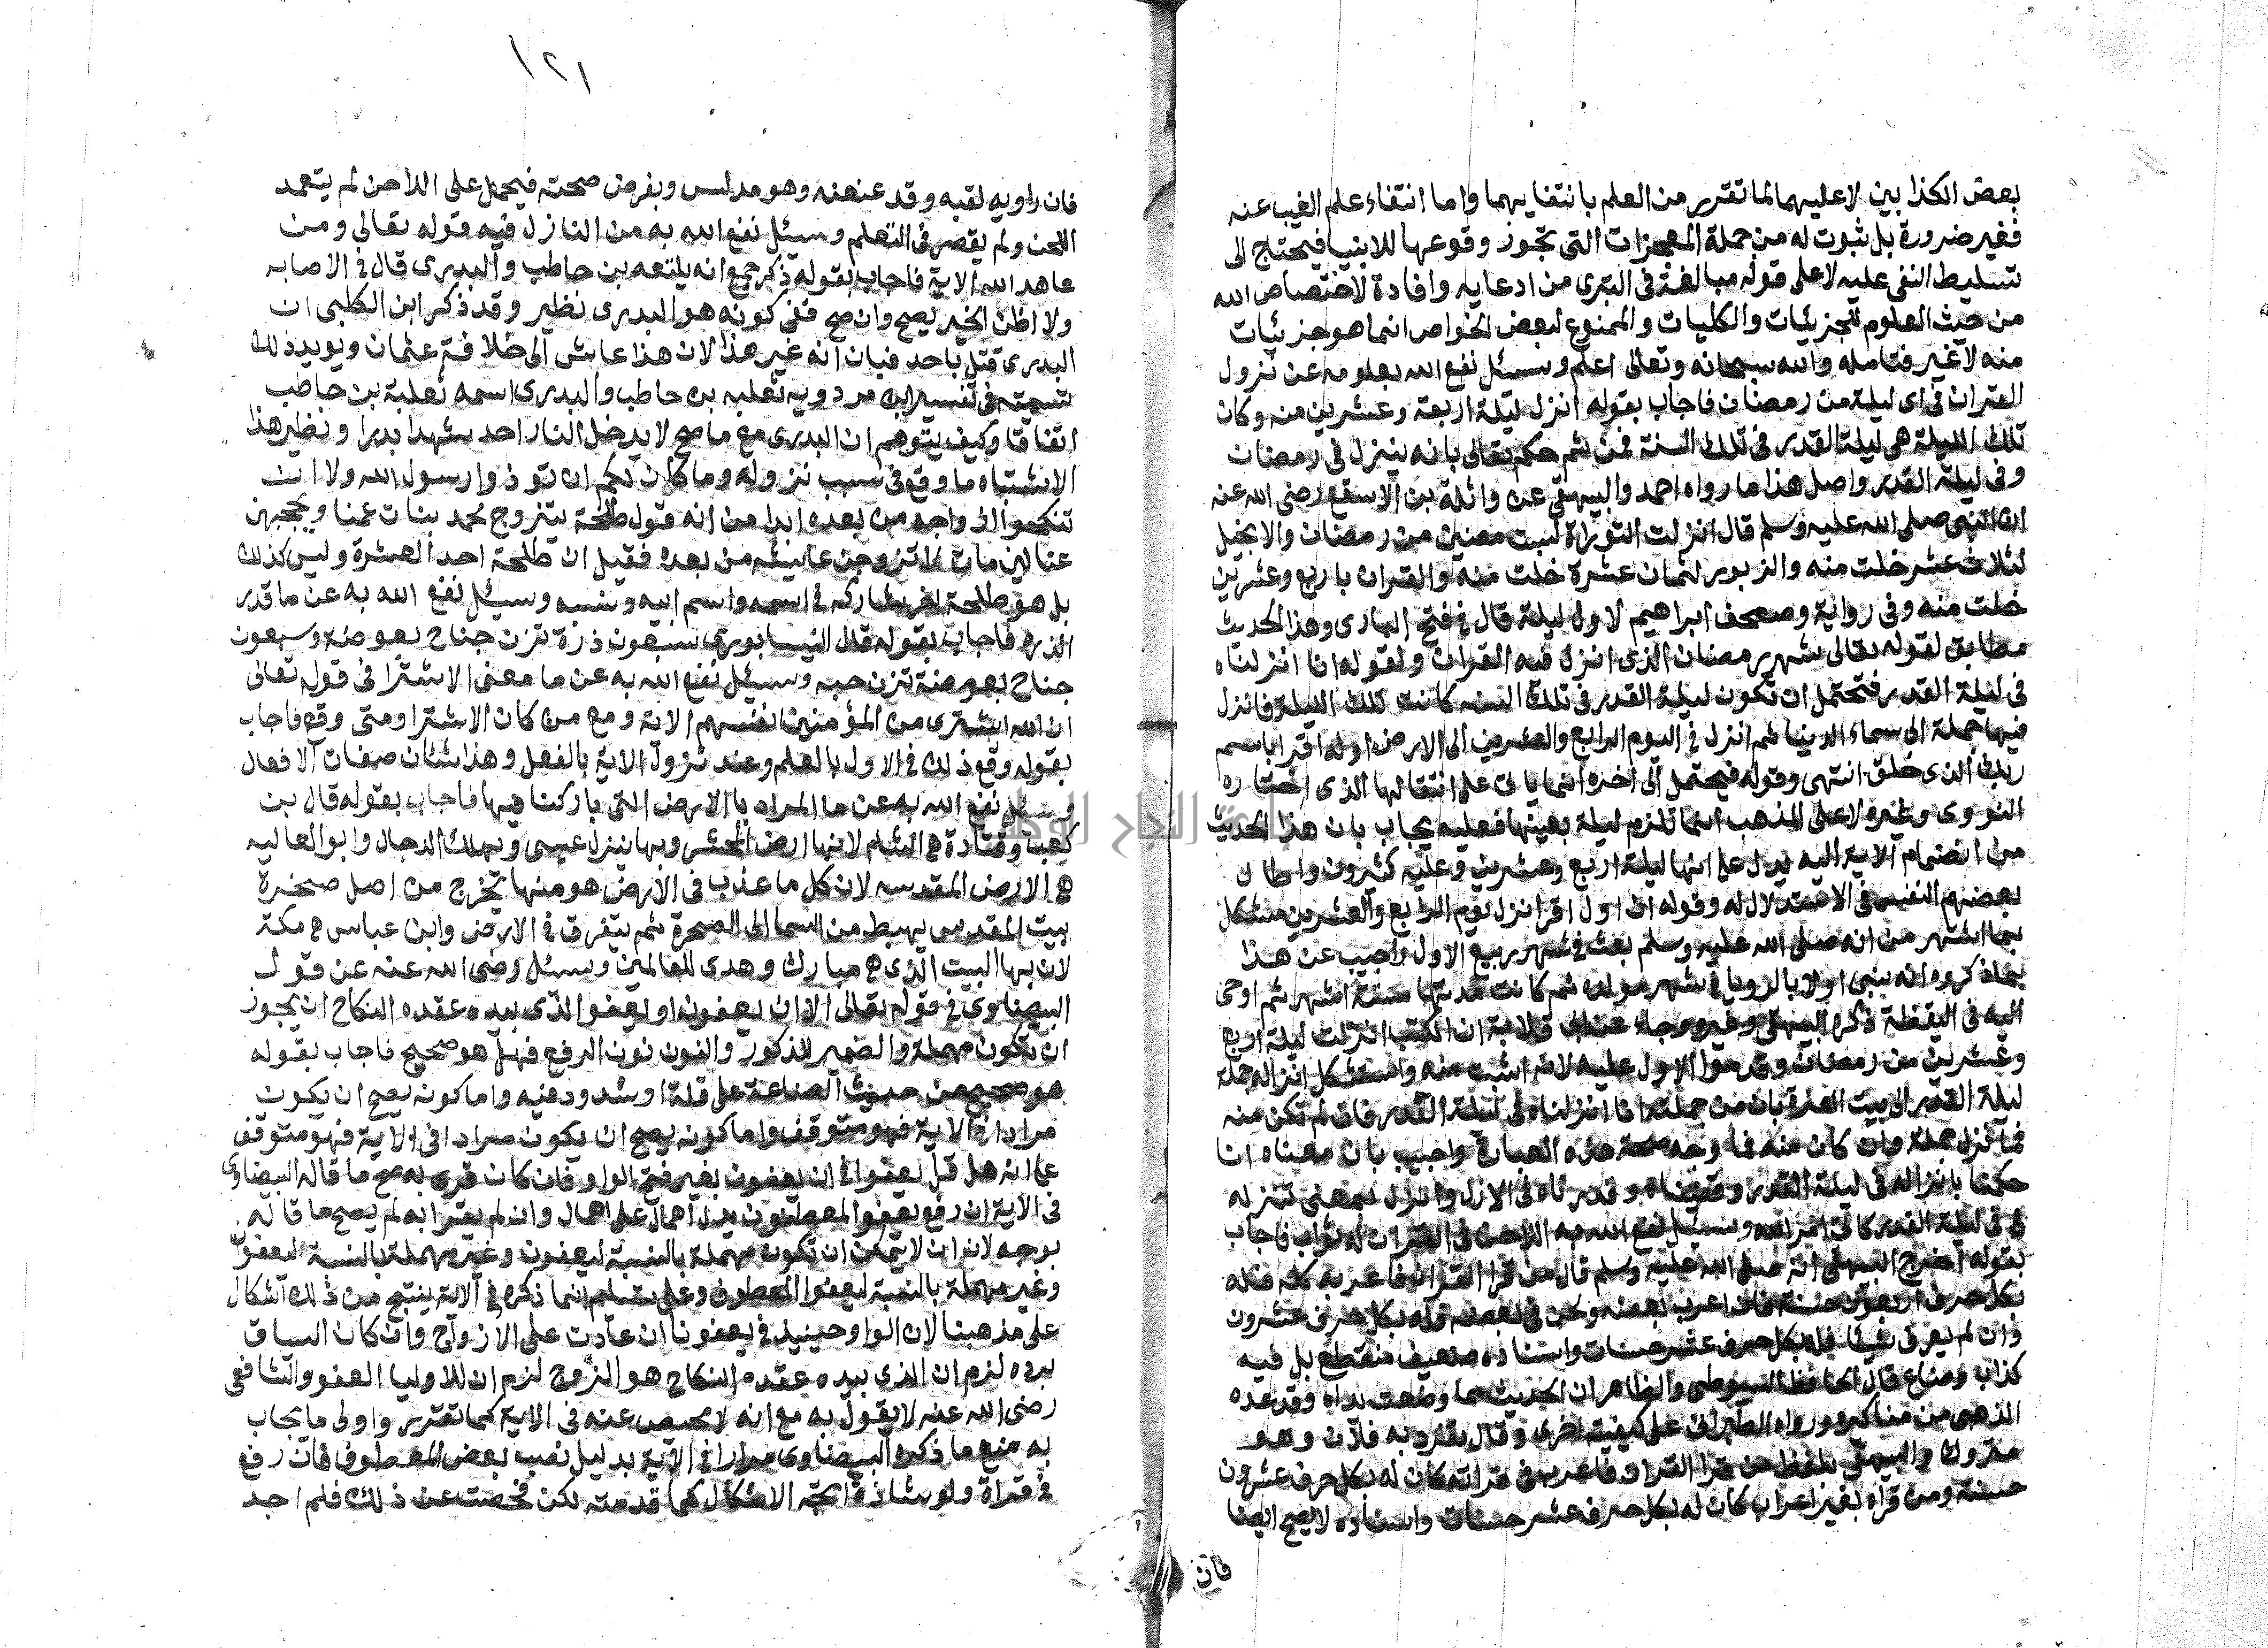 بعض الكذابين لا عليهما لما تقرر من العلم بانتفايهما واما انتفاء علم الغيب عنه
فغير ضرورة بل ثبوت له من جملة المعجزات التى تجوز وقوعها للانبيا فيحتاج الى
تسليط النفى عليه لا على قوله مبالغة فى التبرى من ادعايه وافادة لاختصاص الله
من حيث العلوم للجزئيات والكليات والممنوع لبعض الخواص انما هو جزئيات
منه لا غير فتامله والله سبحانه وتعالى اعلم وسئل نفع الله بعلومه عن نزول
القران فى اى ليلة من رمضان فاجاب بقوله انزل ليلة اربعة وعشرين منه وكان
تلك الليلة هى ليلة القدر فى تلك السنة فمن ثم حكم تعالى بانه ينزل فى رمضان
وفى ليلة القدر واصل هذا ما رواه احمد والبيهقى عن واثلة بن الاسقع رضى الله عنه
ان النبى صلى الله عليه وسلم قال انزلت التوراة لست مضين من رمضان والانجيل
لثلاث عشر خلت منه والزبور لثمان عشرة خلت منه والقران باربع وعشرين
خلت منه وفى رواية وصحف ابراهيم لاول ليلة قال فى فتح البارى وهذا الحديث
مطابق لقوله تعالى شهر رمضان الذى انزل فيه القران ولقوله انا انزلناه
فى ليلة القدر فتحتمل ان تكون ليلة القدر فى تلك السنه كانت تلك الليلة فانزل
فيها جملة الى سماء الدنيا ثم انزل فى اليوم الرابع والعشرين الى الارض اوله اقرا باسم
ربك الذى خلق انتهى وقوله فيحتمل الى اخره انما ياتى على انتقالها الذى اختاره
النووى وغيره لا على المذهب انما تلزم ليلة بعينها فعليه يجاب بان هذا الحديث
من انضمام الاية اليه يدل على انها ليلة اربع وعشرين وعليه كثيرون واطال
بعضهم النفس فى الاستدلال له وقوله ان اول اقرا نزل يوم الرابع والعشرين مشكل
بما اشهر من انه صلى الله عليه وسلم بعث فى شهر ربيع الاول واجيب عن هذا
بما ذكروه انه نبى اولا بالرويا فى شهر مولده ثم كانت مدتها ستة اشهر ثم اوحى
اليه فى اليقظة ذكره البيهقى وغيره وجاء عن ابى قلابة ان الكتب انزلت ليلة اربع
وعشرين من رمضان وقدموا الاول عليه لانه اثبت منه واستشكل انزاله جملة
ليلة القدر الى بيت العزة بان من جملته انا انزلناه فى ليلة القدر فان لم تكن منه
فما نزل جملة وان كان منه فما وجه صحة هذه العبارة واجيب بان معناه انا
حكمنا بانزاله فى ليلة القدر وقضيناه وقدرناه فى الازل وانزل بمعنى تنزله
فى ليلة القدر وسئل نفع الله به اللاحن فى القران له ثواب فاجاب
بقوله اخرج البيهقى انه صلى الله عليه وسلم قال من قرا القران فاعربه كله فله
بكل حرف اربعون حسنة فان اعرب بعضه ولحن فى بعضه فله بكل حرف عشرون
وان لم يعرف شيئا فله بكل حرف عشر حسنات واسناده ضعيف منقطع بل فيه
كذاب وضاع قال الحافظ السيوطى والظاهر ان الحديث مما وضعت يداه وقد عده
الذهبى من مناكيره ورواه الطبرانى على كيفية اخرى وقال تفرد به فلان وهو
متروك والبيهقى بلفظ من قرا القران فاعرب فى قراته كان له بكل حرف عشرون
حسنة ومن قراه بغير اعراب كان له بكل حرف عشر حسنات واسناده لا يصح ايضا
فان
١٢١
فان راويه لقبه وقد عنعنه وهو مدلس وبفرض صحته فيحمل على اللاحن لم يتعمد
اللحن ولم يقصر فى التعلم وسئل نفع الله به من النازل فيه قوله تعالى ومن
عاهد الله الاية فاجاب بقوله ذكر جمع انه ثعلبه بن حاطب والبدرى قال فى الاصابه
ولا اظن الخبر يصح وان صح ففى كونه هو البدرى نظير وقد ذكر ابن الكلبى ان
البدرى قتل باحد فبان انه غير هذا لان هذا عاش الى خلافة عثمان ويويد ذلك
تسميته فى تفسير ابن مردويه ثعلبه بن حاطب والبدرى اسمه ثعلبة بن حاطب
اتفاقا وكيف يتوهم ان البدرى مع ما صح لا يدخل النار احد شهد بدرا ونظير هذا
الاشتباه ما وقع فى سبب نزوله وما كان لكم ان توذوا رسول الله ولا ان
تنكحوا ازواجه من بعده ابدا من انه قول طلحة يتزوج محمد بنات عمنا ويحجبهن
عنا لين مات لاتزوجن عايشه من بعده فقيل ان طلحة احد العشرة وليس كذلك
بل هو طلحة اخر يشاركه فى اسمه واسم ابيه ونسبه وسئل نفع الله به عن ما قدر
الذره فاجاب بقوله قال النيسابورى سبعون ذرة تزن جناح بعوضه وسبعون
جناح بعوضة تزن حبه وسئل نفع الله به عن ما معنى الاشترا فى قوله تعالى
ان الله اشترى من المؤمنين انفسهم الاية ومع من كان الاشترا ومتى وقع فاجاب
بقوله وقع ذلك فى الاول بالعلم وعند نزول الاية بالفعل وهذا شان صفات الافعال
وسئل نفع الله به عن ما المراد بالارض التى باركنا فيها فاجاب بقوله قال بن
كعب وقتادة هى الشام لانها ارض المحشر وبها ينزل عيسى ويهلك الدجال وابو العاليه
هى الارض المقدسه لان كل ما عذب فى الارض هو منها يخرج من اصل صخرة
بيت المقدس يهبط من السما الى الصخرة ثم يتفرق فى الارض وابن عباس هى مكة
لان بها البيت الذى هو مبارك وهدى للعالمين وسئل رضى الله عنه عن قول
البيضاوى فى قوله تعالى الا ان يعفون او يعفو الذى بيده عقده النكاح ان يجوز
ان تكون مهملة والضمير للذكور والنون نون الرفع فهل هو صحيح فاجاب بقوله
هو صحيح من حيث الصناعة على قلة او شذوذ فيه واما كونه يصح ان يكون
مرادا فى الاية فهو متوقف واما كونه يصح ان يكون مرادا فى الاية فهو متوقف
على انه هل قرئ يعفوا فى ان يعفون بغير فتح الواو فان كان قرى به صح ما قاله البيضاوى
فى الاية ان رفع يعفو المعطوف يدل اهمال على اهمال وان لم يقرا به لم يصح ما قاله
بوجه لان ان لا يتمكن ان تكون مهملة بالنسبة ليعفون وغير مهملة بالنسبة ليعفون
وغير مهملة بالنسبة ليعفوا المعطوف وعلى تسليم انما ذكره فى الاية ينتج من ذلك اشكال
على مذهبنا لان الواو حينيذ فى يعفون ان عادت على الازواج وان كان السياق
يرده لزم ان الذى بيده عقده النكاح هو الزوج لزم ان للاوليا العفو والشافعى
رضى الله عنه لا يقول به مع انه لا محيص عنه فى الاية كما تقرر واولى ما يجاب
به منع ما ذكره البيضاوى مرادا فى الاية بدليل نصب بعض المعطوف فان رفع
فى قراة ولو شاذة اتجه الاشكال كما قدمته لكن فحصت عن ذلك فلم اجد